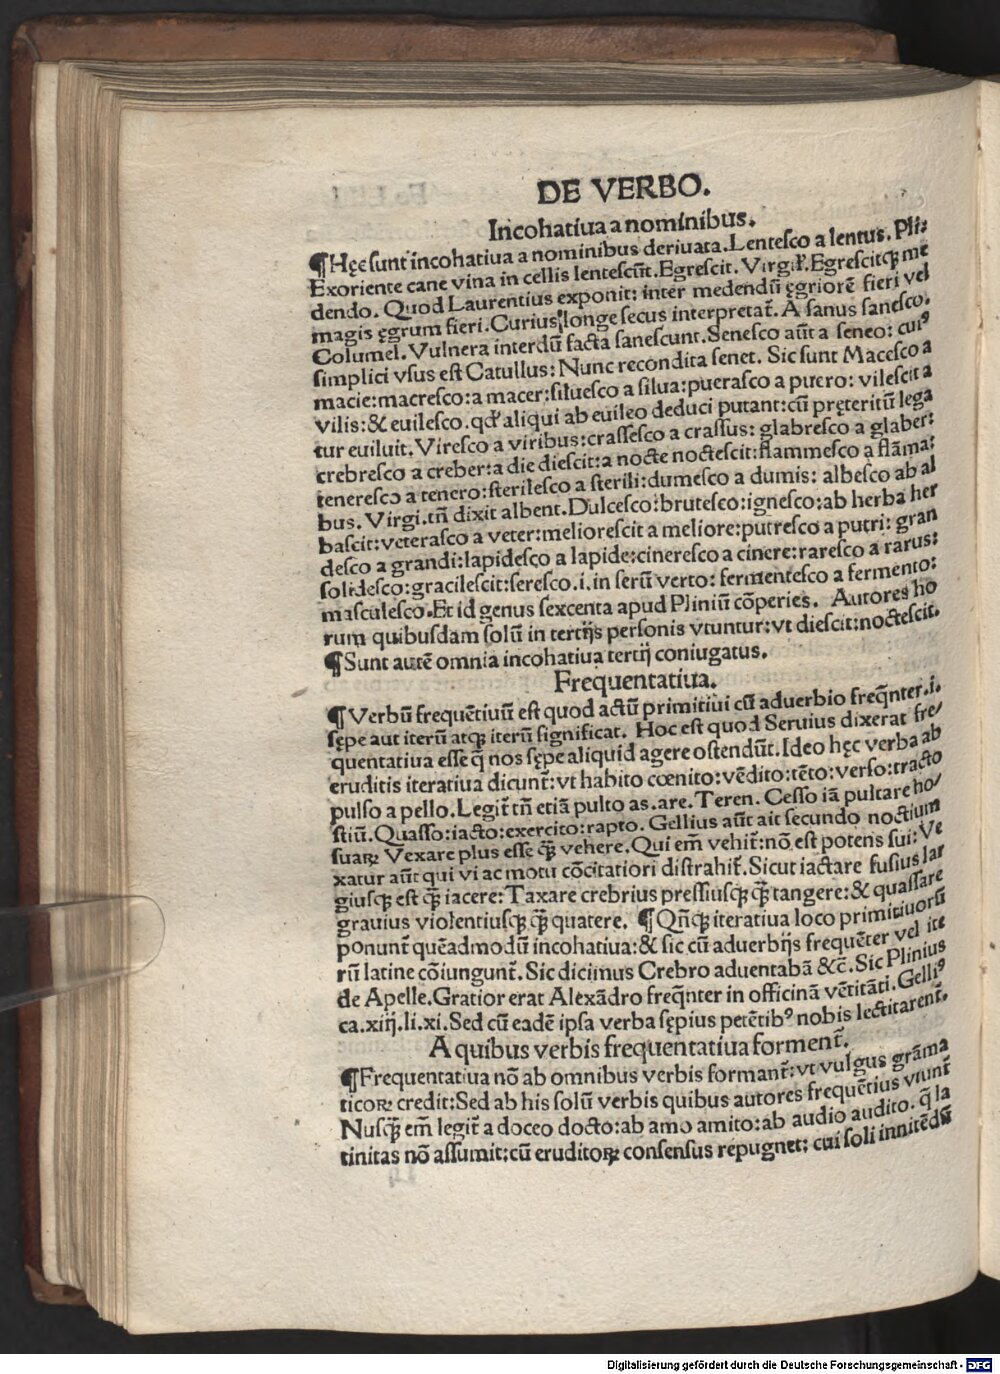 DE VERBO.
Incohatiua a nominibus.
¶Hęc sunt incohatiua a nominibus deriuata. Lentesco a lentus. Pli:
Exoriente cane vina in cellis lentescūt. Egrescit. Virgiľ. Egrescitqꝫ me
dendo. Quod Laurentius exponit: inter medendū ęgriorē fieri vel
magis ęgrum fieri. Curius longe secus interpretat̄. A sanus sanesco.
Columel. Vulnera interdū facta sanescunt. Senesco aūt a seneo: cuiꝰ
simplici vsus est Catullus: Nunc recondita senet. Sic sunt Macesco a
macie: macresco: a macer: siluesco a silua: puerasco a puero: vilescit a
vilis: & euilesco. qđ aliqui ab euileo deduci putant: cū pręteritū lega
tur euiluit. Viresco a viribus: crassesco a crassus: glabresco a glaber:
crebresco a creber: a die diescit: a nocte noctescit: flammesco a flāma:
teneresco a tenero: sterilesco a sterili: dumesco a dumis: albesco ab al
bus. Virgi. tñ dixit albent. Dulcesco: brutesco: ignesco: ab herba her
bascit: veterasco a veter: meliorescit a meliore: putresco a putri: gran
desco a grandi: lapidesco a lapide: cineresco a cinere: raresco a rarus:
solidesco: gracilescit: seresco. i. in serū verto: fermentesco a fermento:
masculesco. Et id genus sexcenta apud Pliniū cōperies. Autores ho
rum quibusdam solū in tertijs personis vtuntur: vt diescit: noctescit.
¶Sunt autē omnia incohatiua tertij coniugatus.
Frequentatiua.
¶Verbū frequētiuū est quod actū primitiui cū aduerbio freq̄nter. i.
sępe aut iterū atqꝫ iterū significat. Hoc est quod Seruius dixerat fre/
quentatiua esse q̄ nos sępe aliquid agere ostendūt. Ideo hęc verba ab
eruditis iteratiua dicunt̄: vt habito cœnito: vēdito: tēto: verso: tracto
pulso a pello. Legit̄ tñ etiā pulto as. are. Teren. Cesso iā pultare ho/
stiū. Quasso: iacto: exercito: rapto. Gellius aūt ait secundo noctium
suaꝝ Vexare plus esse qꝫ̄ vehere. Qui em̄ vehit̄: nō est potens sui: Ve
xatur aūt qui vi ac motu cōcitatiori distrahit̄. Sicut iactare fusius lar
giusqꝫ est qꝫ̄ iacere: Taxare crebrius pressiusqꝫ qꝫ̄ tangere: & quassare
grauius violentiusqꝫ qꝫ̄ quatere. ¶Qñqꝫ iteratiua loco primitiuorū
ponunt̄ quēadmodū incohatiua: & sic cū aduerbijs frequēter vel ite
rū latine cōiungunt̄. Sic dicimus Crebro aduentabā &c̄. Sic Plinius
de Apelle. Gratior erat Alexādro freq̄nter in officinā vētitāti. Gelliꝰ
ca. xiij. li. xi. Sed cū eadē ipsa verba sępius petētibꝰ nobis lectitarent̄.
A quibus verbis frequentatiua forment̄.
¶Frequentatiua nō ab omnibus verbis formant̄: vt vulgus grāma
ticoꝝ credit: Sed ab his solū verbis quibus autores frequētius vtunt̄
Nusqꝫ̄ em̄ legit̄ a doceo docto: ab amo amito: ab audio audito. q̄ la
tinitas nō assumit: cū eruditoꝝ consensus repugnet: cui soli innitēdū
Digitalisierung gefördert durch die Deutsche Forschungsgemeinschaft - DFG